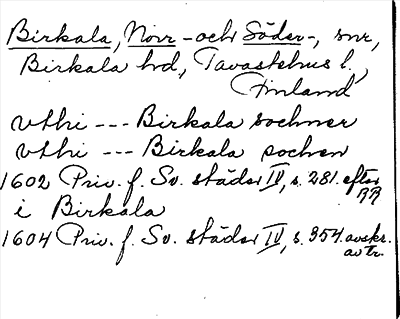 Birkala, Norr- och Söder-, snr,
Birkala hd., Tavastehus l.
Finland
vthi --- Birkala sochner
vthi --- Birkala sochen
1602 Priv. f. Sv. städer IV, s. 281. efter RR
i Birkala
1604 Priv. f. Sv. städer IV, s. 354. avskr. av tr.